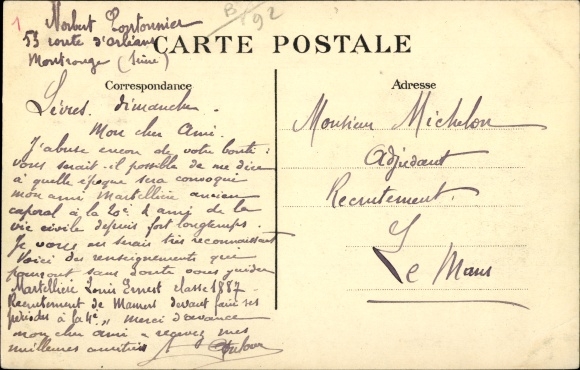 1
B 92
Norbert
55 route d'Orléans
Montrouge (Seine)
CARTE POSTALE
Correspondance
Adresse
Sèvres. dimanche.
Mon cher Ami.
J'abuse encore de votre bonté :
vous serait-il possible de me dire
à quelle époque sera convoqué
mon ami Martellière ancien
caporal à la 20e & ami de la
vie civile depuis fort longtemps.
Je vous en serais très reconnaissant
Voici des renseignements que
pourront sans doute vous guider
Martellière Louis Ernest classe 1887 -
Recrutement de Mamers devant faire ses
périodes à la 4e " merci d'avance
mon cher ami - recevez mes
meilleures amitiés
Monsieur Michelon
Adjudant
Recrutement.
Le Mans